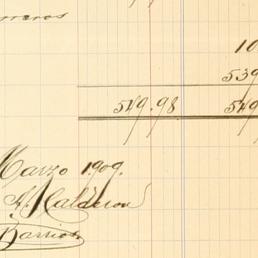 10
539
549.98 549
Marzo 1909.
A. Calderon
Barrios